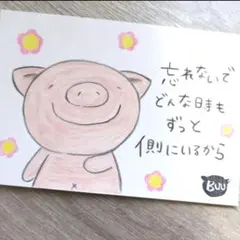 忘れないで
どんな日時も
ずっと
側にいるから
BUU